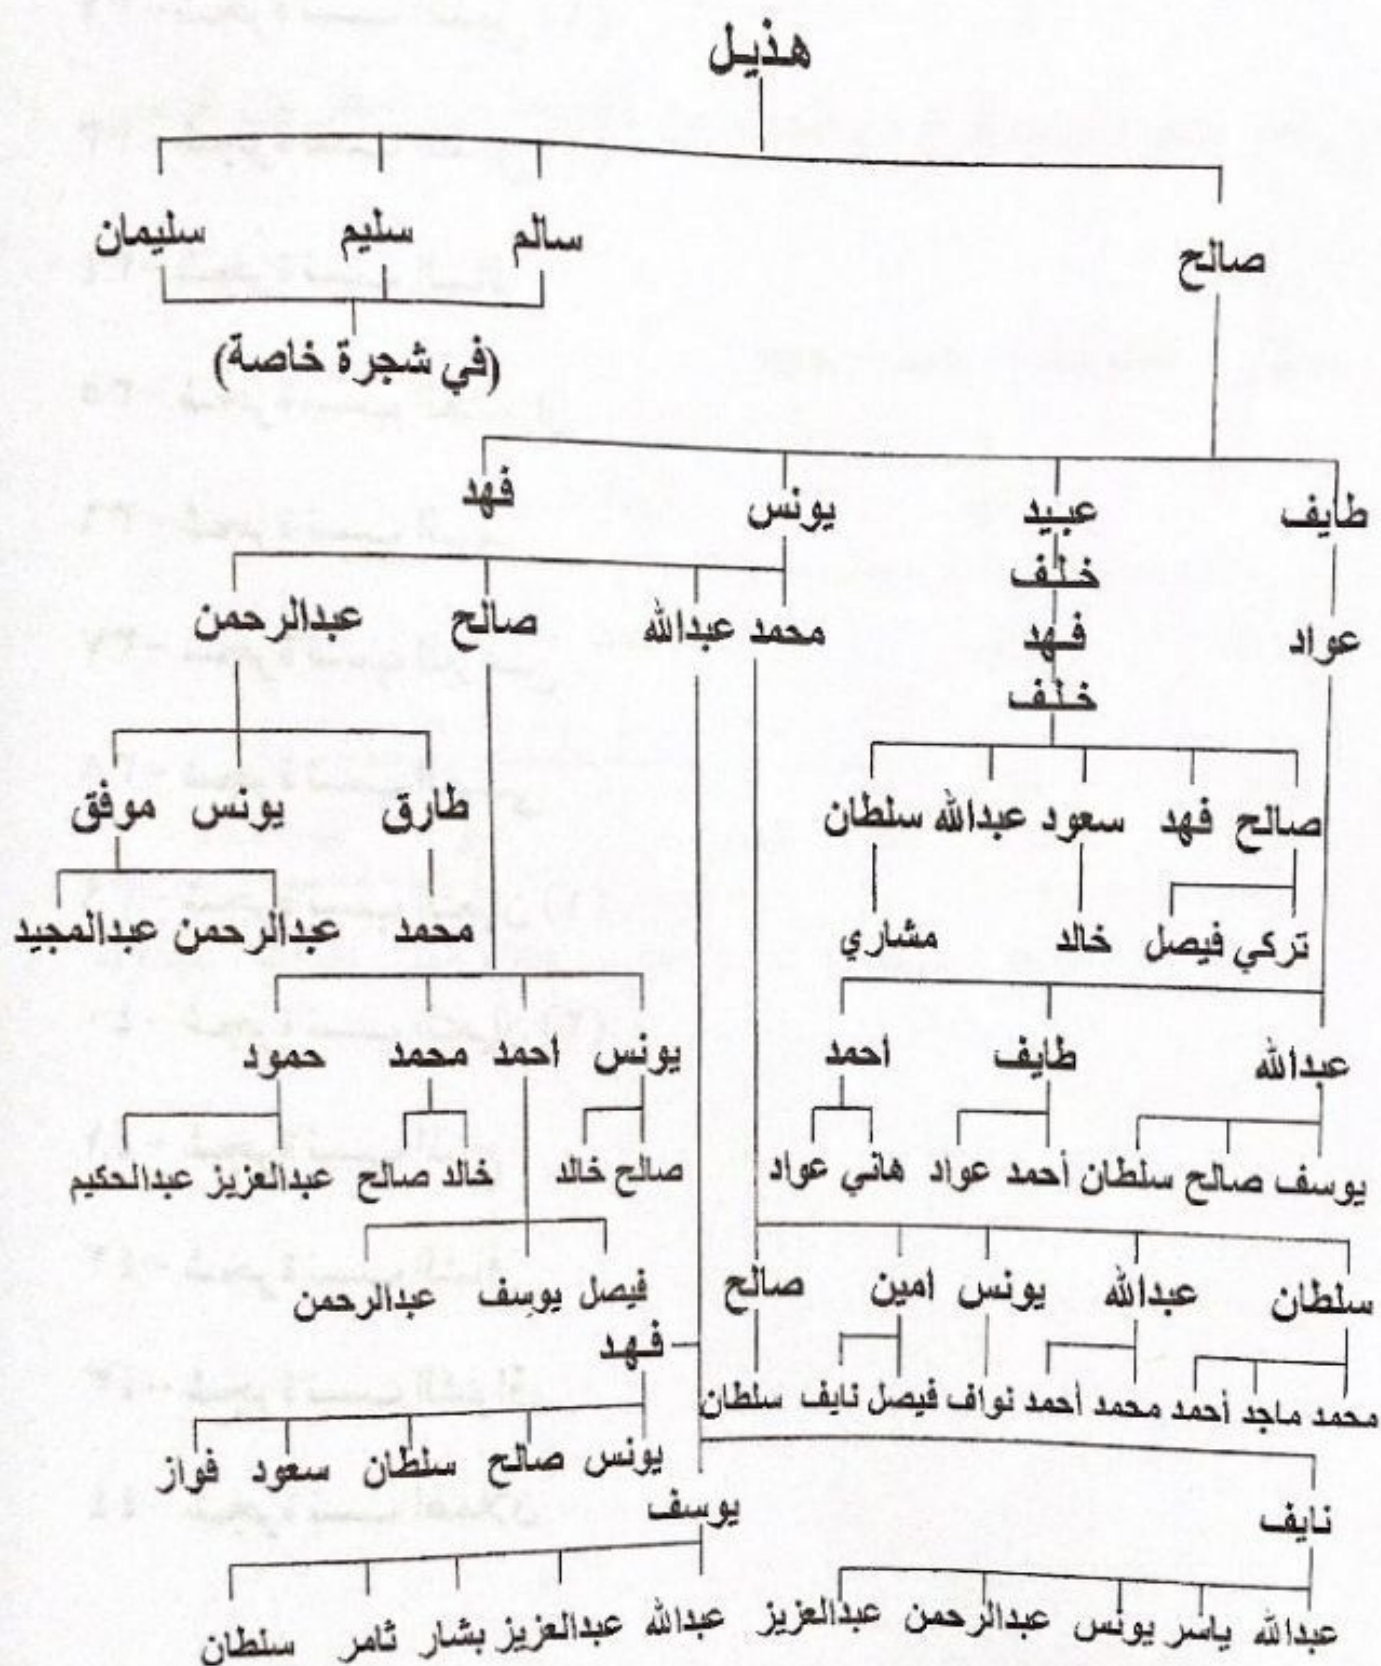 هذيل
سالم سليم سليمان
صالح
(في شجرة خاصة)
طايف عبيد يونس فهد
خلف
عواد فهد محمد عبدالله صالح عبدالرحمن
خلف
صالح فهد سعود عبدالله سلطان طارق يونس موفق
تركي فيصل خالد مشاري محمد عبدالرحمن عبدالمجيد
عبدالله طايف احمد يونس احمد محمد حمود
يوسف صالح سلطان أحمد عواد هاني عواد صالح خالد خالد صالح عبدالعزيز عبدالحكيم
سلطان عبدالله يونس امين صالح فيصل يوسف عبدالرحمن
فهد
محمد ماجد أحمد محمد أحمد نواف فيصل نايف سلطان
يونس صالح سلطان سعود فواز
نايف يوسف
عبدالله ياسر يونس عبدالرحمن عبدالعزيز عبدالله عبدالعزيز بشار ثامر سلطان